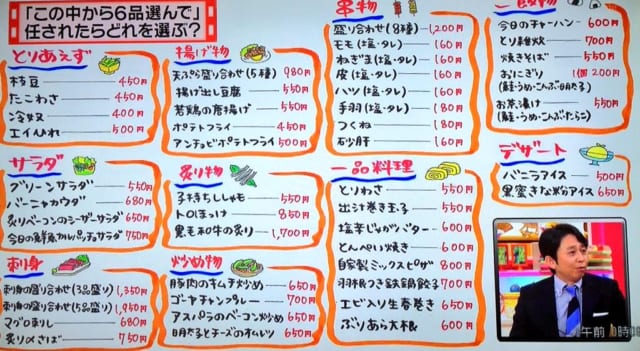 「この中から6品選んで」
任されたらどれを選ぶ?
とりあえず
枝豆 450円
たこわさ 450円
冷奴 400円
エイひれ 500円
サラダ
グリーンサラダ 550円
バーニャカウダ 680円
炙りベーコンのシーザーサラダ 650円
今日の鮮魚カルパッチョサラダ 750円
刺身
刺身の盛り合わせ(3品盛り) 1,350円
刺身の盛り合わせ(5品盛り) 1,950円
マグロ刺し 680円
炙り〆さば 750円
揚げ物
天ぷら盛り合わせ(5種) 980円
揚げ出し豆腐 550円
若鶏の唐揚げ 550円
ポテトフライ 450円
アンチョビポテトフライ 500円
炙り物
子持ちししゃも 550円
トロほっけ 850円
黒毛和牛の炙り 1,700円
炒め物
豚肉のキムチ炒め 650円
ゴーヤチャンプルー 700円
アスパラのベーコン炒め 650円
明太子とチーズのオムレツ 650円
串物
盛り合わせ(8種) 1,200円
モモ(塩・タレ) 160円
ねぎま(塩・タレ) 160円
皮(塩・タレ) 160円
ハツ(塩・タレ) 160円
手羽(塩・タレ) 180円
つくね 180円
砂肝 160円
一品料理
とりわさ 550円
出汁巻き玉子 550円
塩辛じゃがバター 600円
とんぺい焼き 600円
自家製ミックスピザ 800円
羽根つき鉄鍋餃子 700円
エビ入り生春巻き 650円
ぶりあら大根 600円
今日のチャーハン 600円
とり雑炊 700円
焼きそば 550円
おにぎり 1個 200円
(鮭・うめ・こんぶ・明太子)
お茶漬け 550円
(鮭・うめ・こんぶ・たらこ)
デザート
バニラアイス 500円
黒蜜きな粉アイス 650円
午前